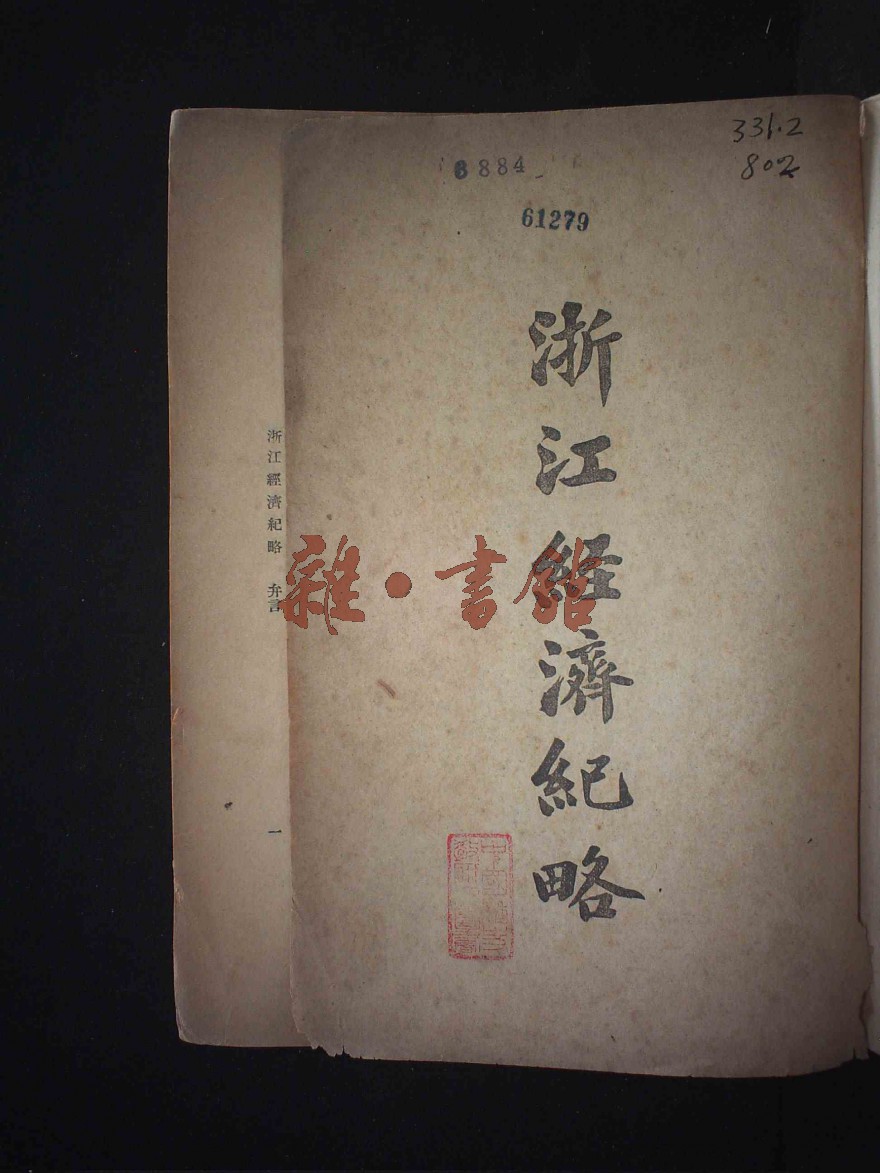 331.2
802
6884
61279
浙江経濟紀略
浙江經濟紀略 弁言
一
雜·書館